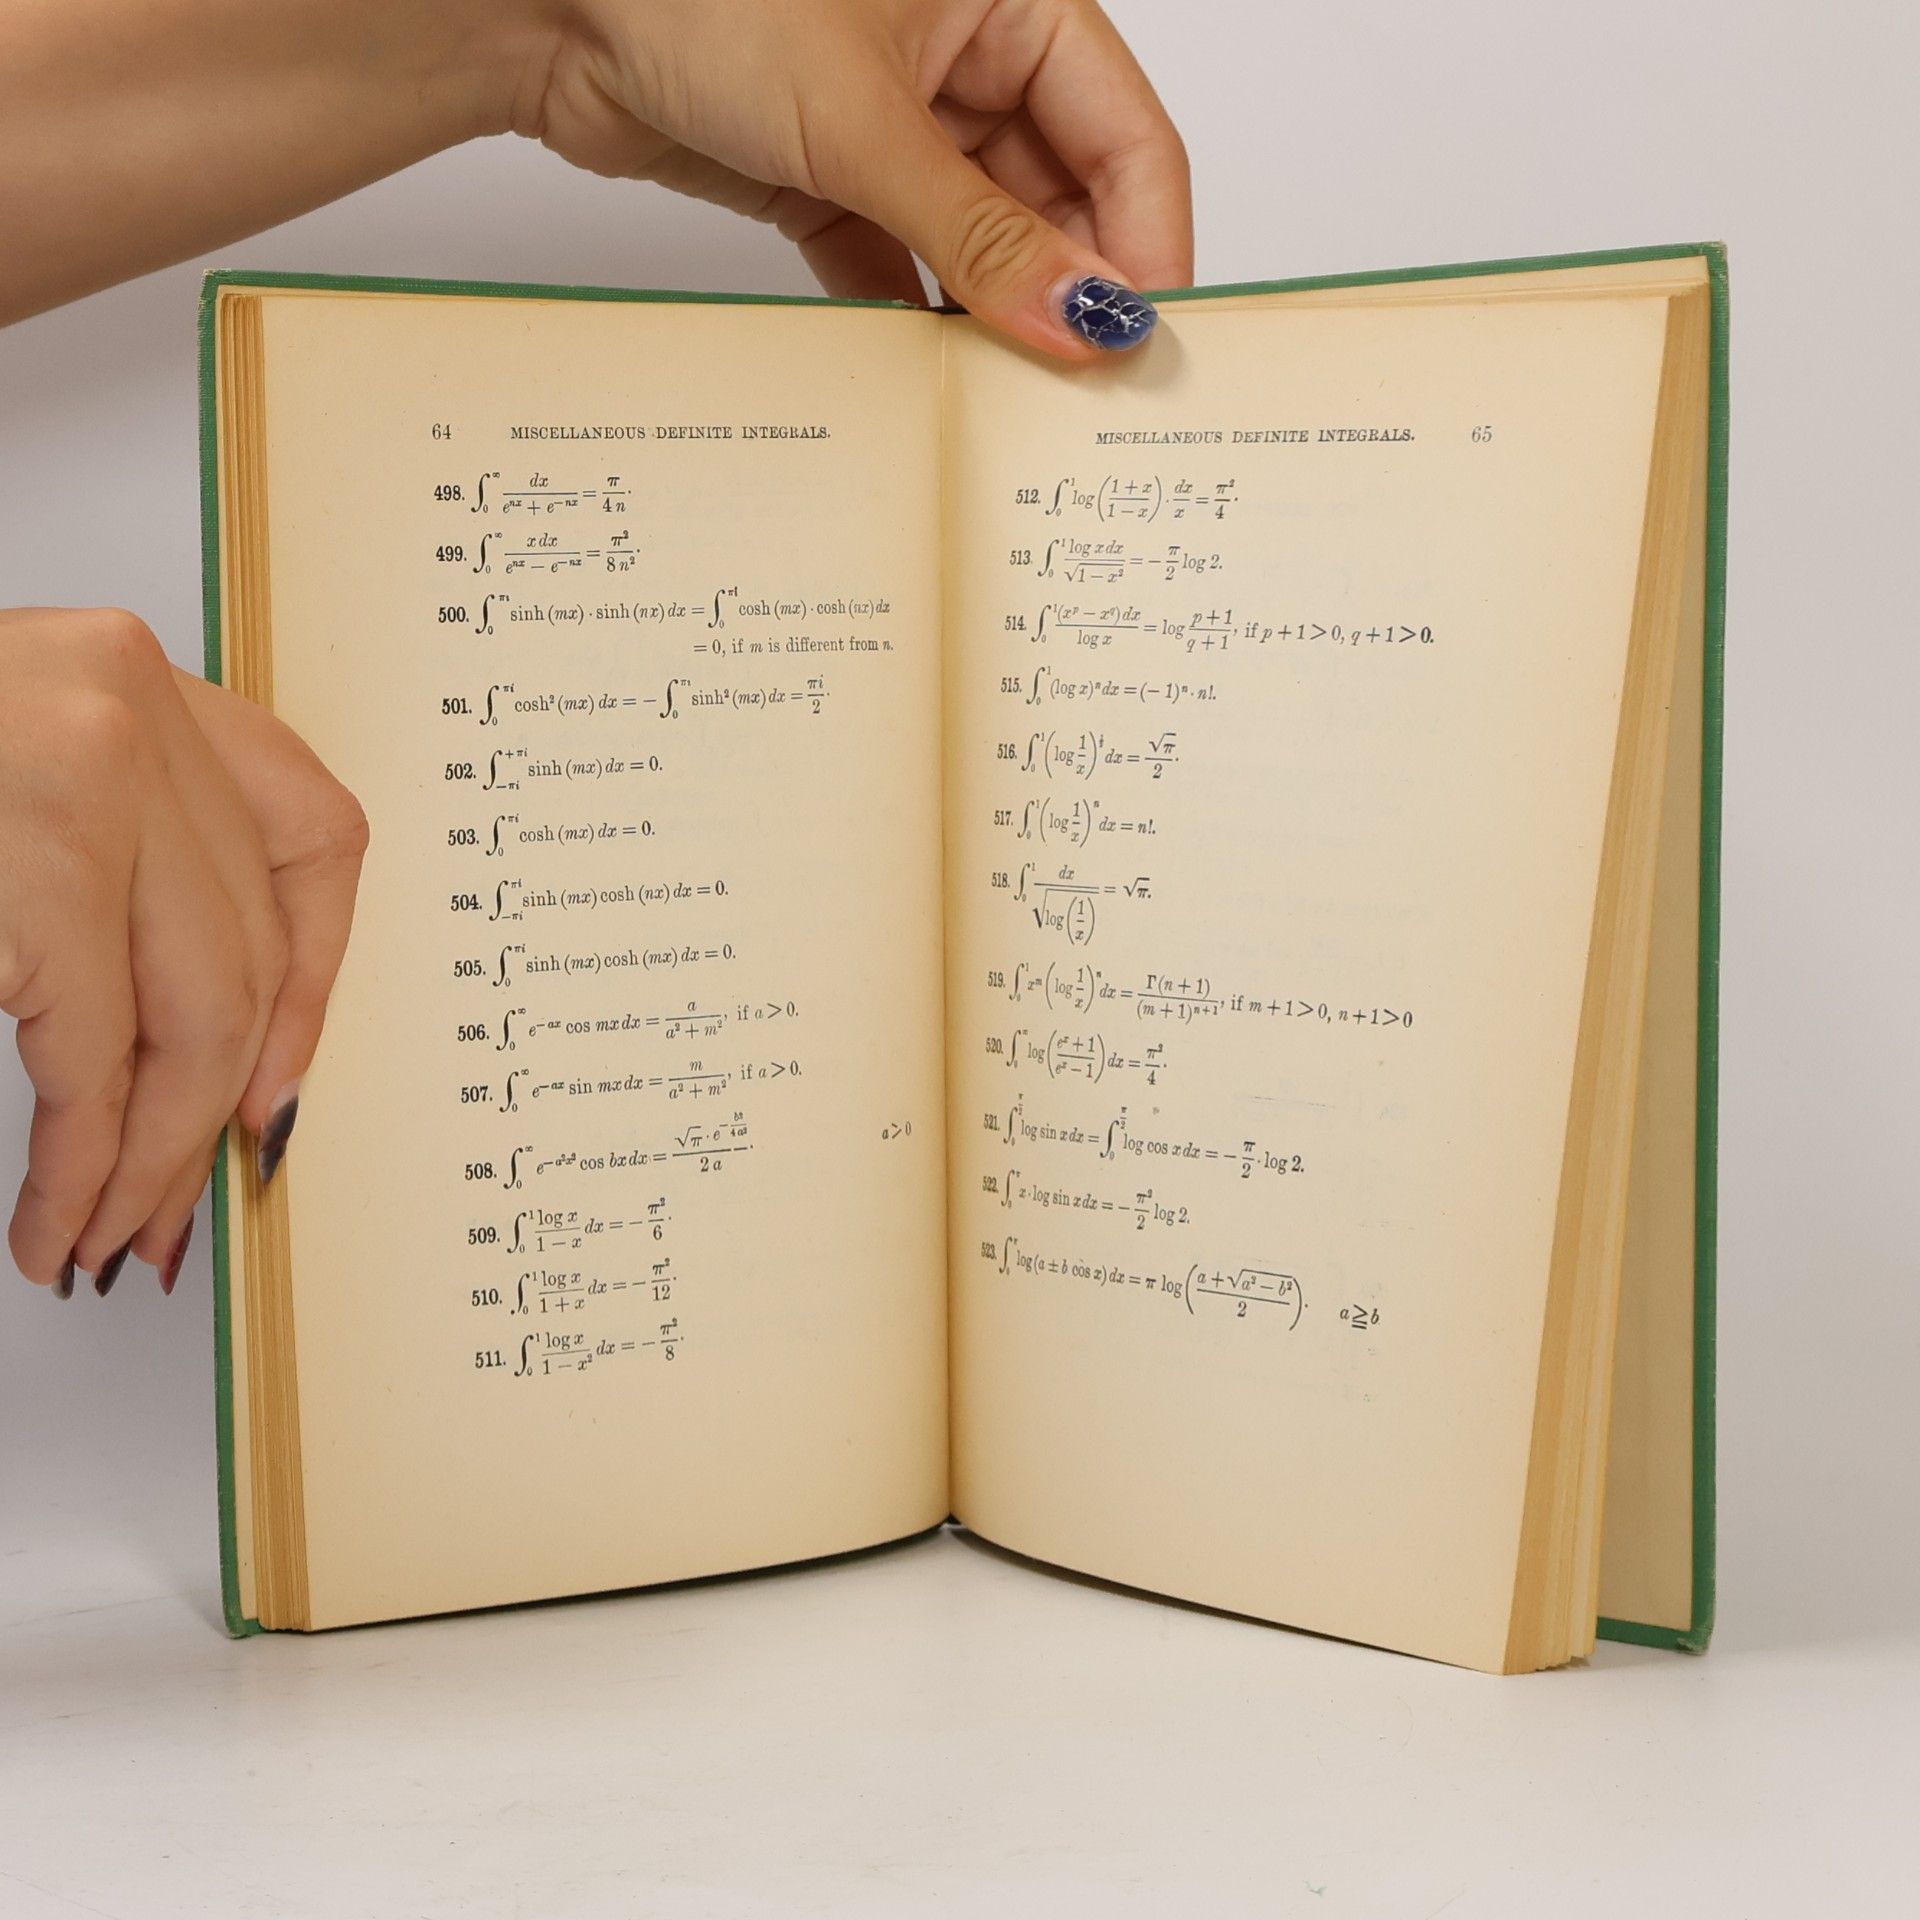 64 MISCELLANEOUS DEFINITE INTEGRALS.
498. ∫₀^∞ dx/(e^{nx} + e^{−nx}) = π/(4n).
499. ∫₀^∞ x dx/(e^{nx} − e^{−nx}) = π²/(8n²).
500. ∫₀^{πi} sinh (mx) · sinh (nx) dx = ∫₀^{πi} cosh (mx) · cosh (nx) dx
= 0, if m is different from n.
501. ∫₀^{πi} cosh² (mx) dx = − ∫₀^{πi} sinh² (mx) dx = πi/2.
502. ∫_{−πi}^{+πi} sinh (mx) dx = 0.
503. ∫₀^{πi} cosh (mx) dx = 0.
504. ∫_{−πi}^{πi} sinh (mx) cosh (nx) dx = 0.
505. ∫₀^{πi} sinh (mx) cosh (mx) dx = 0.
506. ∫₀^∞ e^{−ax} cos mx dx = a/(a² + m²), if a > 0.
507. ∫₀^∞ e^{−ax} sin mx dx = m/(a² + m²), if a > 0.
508. ∫₀^∞ e^{−a²x²} cos bx dx = (√π · e^{−b²/4a²})/(2a). a > 0
509. ∫₀¹ (log x)/(1 − x) dx = − π²/6.
510. ∫₀¹ (log x)/(1 + x) dx = − π²/12.
511. ∫₀¹ (log x)/(1 − x²) dx = − π²/8.
MISCELLANEOUS DEFINITE INTEGRALS. 65
512. ∫₀¹ log ((1 + x)/(1 − x)) · dx/x = π²/4.
513. ∫₀¹ (log x dx)/√(1 − x²) = − (π/2) log 2.
514. ∫₀¹ ((x^p − x^q) dx)/(log x) = log (p + 1)/(q + 1), if p + 1 > 0, q + 1 > 0.
515. ∫₀¹ (log x)^n dx = (− 1)^n · n!.
516. ∫₀¹ (log 1/x)^{½} dx = √π/2.
517. ∫₀¹ (log 1/x)^n dx = n!.
518. ∫₀¹ dx/√(log (1/x)) = √π.
519. ∫₀¹ x^m (log 1/x)^n dx = Γ(n + 1)/(m + 1)^{n+1}, if m + 1 > 0, n + 1 > 0
520. ∫₀^∞ log ((e^x + 1)/(e^x − 1)) dx = π²/4.
521. ∫₀^{π/2} log sin x dx = ∫₀^{π/2} log cos x dx = − π/2 · log 2.
522. ∫₀^π x · log sin x dx = − (π²/2) log 2.
523. ∫₀^π log (a ± b cos x) dx = π log ((a + √(a² − b²))/2). a ≧ b